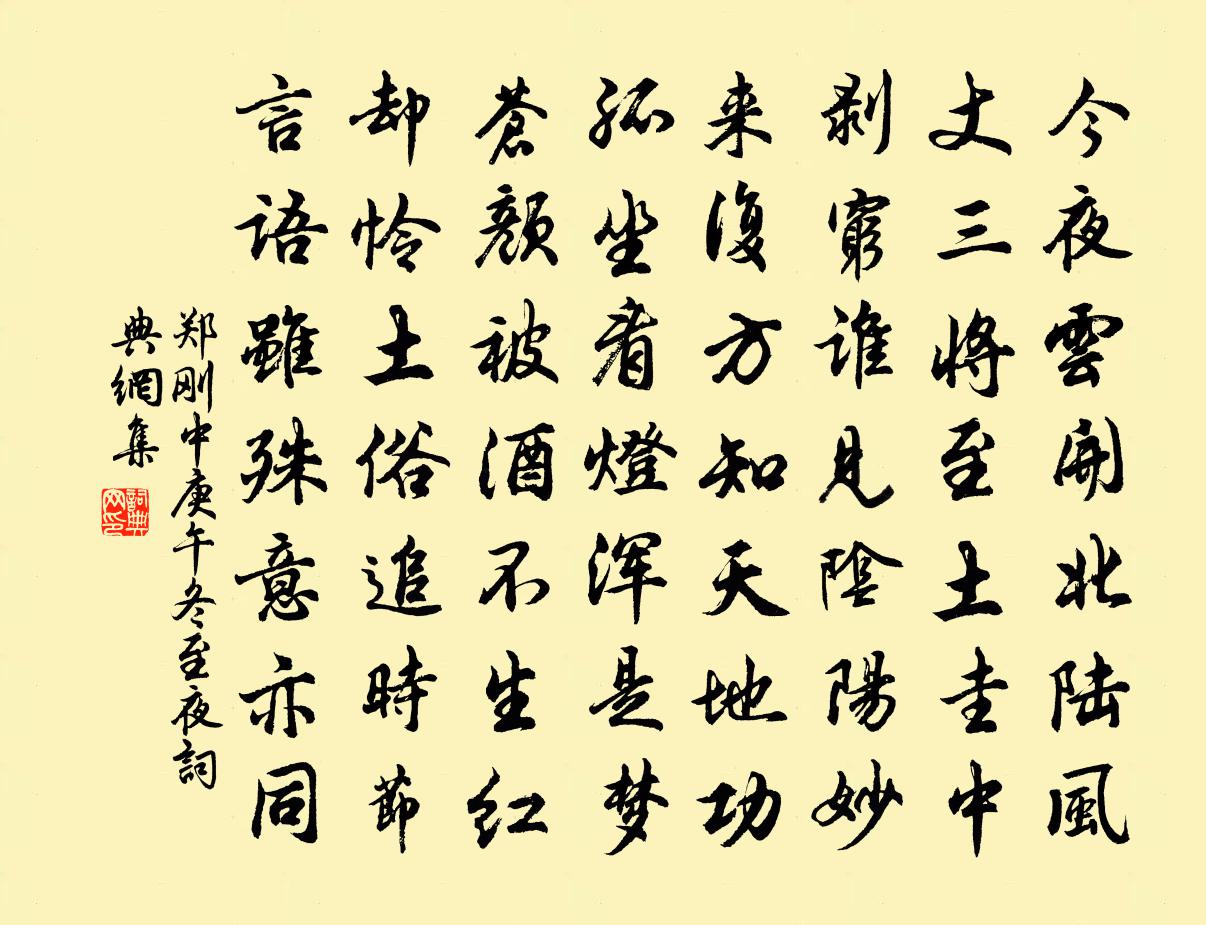 今夜雲開北陆風
丈三將至土圭中
剥窮誰見陰陽妙
来復方知天地功
孤坐看燈浑是梦
蒼顏被酒不生红
却怜土俗追時節
言語雖殊意亦同
郑刚中庚午冬至夜詞
典網集
詞典
网印